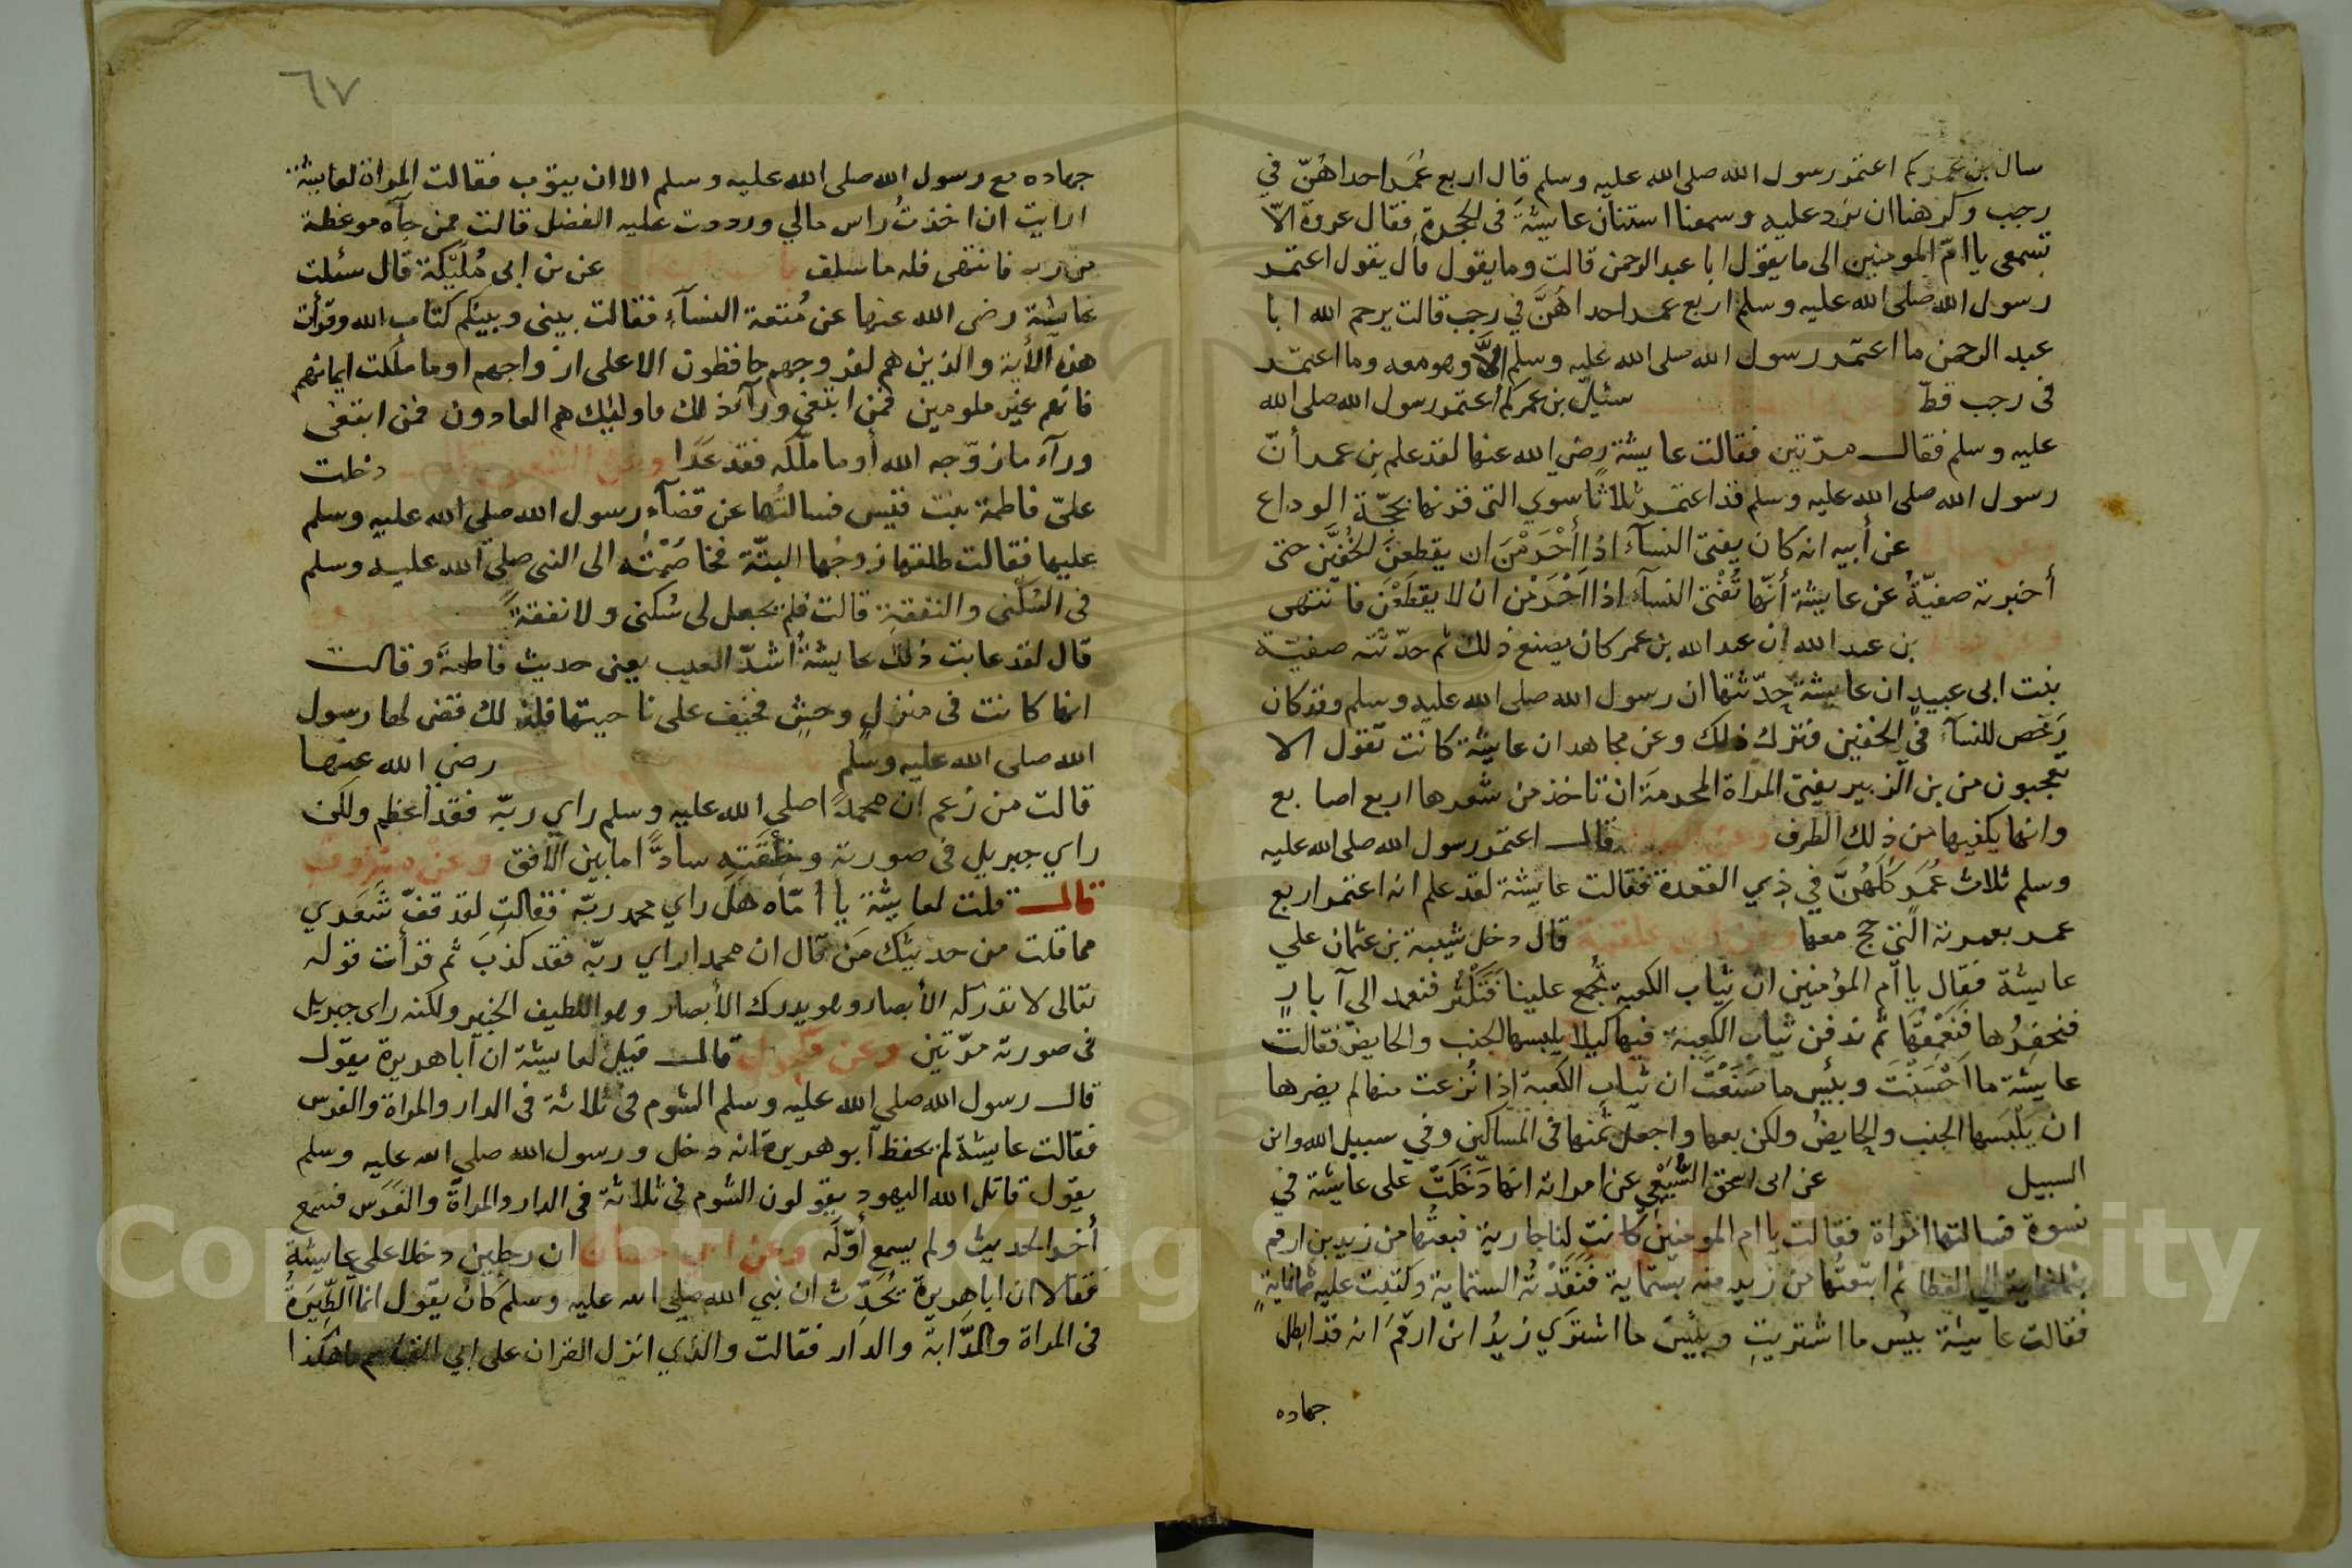 سال بن عمر كم اعتمر رسول الله صلى الله عليه وسلم قال اربع عُمَر احداهُنّ في
رجب وكرهنا ان نرد عليه وسمعنا استنان عايشة في الحجرة فقال عروة الا
تسمعى يا امّ المومنين الى ما يقول ابا عبد الرحمن قالت وما يقول قال يقول اعتمر
رسول الله صلى الله عليه وسلم اربع عمر احداهنَّ في رجب قالت يرحم الله ابا
عبد الرحمن ما اعتمر رسول الله صلى الله عليه وسلم الاَّ وهو معه وما اعتمر
فى رجب قطّ سئيل بن عمر كم اعتمر رسول الله صلى الله
عليه وسلم فقال مرّتين فقالت عايشة رضي الله عنها لقد علم بن عمر أنّ
رسول الله صلى الله عليه وسلم قد اعتمر ثلاثًا سوي التى قرنها بحجّة الوداع
عن أبيه انه كان يفتى النسآء اذا أحْرَمْنَ ان يقطعنَ الخُفَّيْن حتى
أخبرته صفيّةُ عن عايشة أنّها تُفْتى النسآء اذا احْرَمْن ان لا يقطَعْنَ فانتهى
بن عبد الله ان عبد الله بن عمر كان يصنع ذلك ثم حدّثته صفيّة
بنت ابى عبيد ان عايشة حدّثتها ان رسول الله صلى الله عليه وسلم قد كان
رَخّص للنسآء في الخفين فترك ذلك وعن مجاهد ان عايشة كانت تقول الا
تعجبون من بن الزبير يفتى المراة المحرمة ان تاخذ من شعرها اربع اصابع
وانما يكفيها من ذلك الطرف قال اعتمر رسول الله صلى الله عليه
وسلم ثلاث عُمَر كلّهُنَّ في ذي القعدة فقالت عايشة لقد علم انه اعتمر اربع
عمر بعمرته التي حج معها وعن ابى علقمة قال دخل شيبة بن عثمان علي
عايشة فقال يا ام المؤمنين ان ثياب الكعبة تُجمع علينا فَتَكْثُر فنعمد الي آبارٍ
فنحفِرُها فَنُعَمِّقُهَا ثم ندفن ثياب الكعبة فيها كيلا يلبسها الجنب والحايض فقالت
عايشة ما احْسَنْتَ وبئس ما صَنَعْتَ ان ثياب الكعبة اذا نُزعت منها لم يضرها
ان يَلْبَسها الجنب والحايضُ ولكن بعها واجعل ثمنها فى المساكين وفي سبيل الله وابن
السبيل عن ابى اسحق السَّبيعي عن امراته انها دَخَلَتْ على عايشة في
نسوة فسالتها امْراة فقالت يا ام المومنين كانت لنا جارية فبعتُها من زيد بن ارقم
بثمانماية الي العطا ثم ابتعتُها من زيد منه بستماية فَنَقَدْتُه الستماية وكتبت عليه ثمانمايةٍ
فقالت عايشة بئس ما اشتريتِ وبئس ما اشتَري زيدُ ابن ارقم انه قد ابطل
جهاده
٦٧
جهاده مع رسول الله صلى الله عليه وسلم الا ان يتوب فقالت المراة لعايشة
ارايت ان اخذتُ راس مالي ورددت عليه الفضل قالت فمن جآه موعظة
من ربه فانتهى فله ما سلف عن بن ابى مُلَيْكة قال سئلت
عايشة رضي الله عنها عن مُتعة النسآءِ فقالت بينى وبينكم كتاب الله وقرأت
هذه الأية والذين هم لفروجهم حافظون الا على ازواجهم او ما ملكت ايمانهم
فانهم غير ملومين فمن ابتغى ورآء ذلك فاوليك هم العادون فمن ابتغى
ورآء ما زوّجه الله أو ما ملّكه فقد عَدا وعن الشعبى دخلت
علىّ فاطمة بنت قيس فسالتُها عن قضآء رسول الله صلي الله عليه وسلم
عليها فقالت طلقها زوجُها البتّة فخاصَمْتُه الى النبى صلي الله عليه وسلم
فى السُكنى والنفقة قالت فلم يجعل لى سُكنى ولا نفقةً
قال لقد عابت ذلك عايشةُ أشدّ العيب يعنى حديث فاطمة وقالت
انما كانت فى منزل وحشٍ فخيف على ناحيتها فلذلك قضى لها رسول
الله صلى الله عليه وسلم رضي الله عنها
قالت من زعم ان محمدًا صلى الله عليه وسلم راي ربّه فقد أعظم ولكن
راي جبريل فى صورته وخِلْقَتِه سادًّا ما بين الافق وعن مسروق
قال قلت لعايشة يا امّاه هل راي محمد ربّه فقالت لقد قفّ شَعَري
مما قلت من حديثك مَن قال ان محمدا راي ربّه فقد كذب ثم قرأت قوله
تعالى لا تدركه الأبصار وهو يدرك الأبصار وهو اللطيف الخبير ولكنه راى جبريل
فى صورته مرّتين وعن مكحول قال قيل لعايشة ان أبا هريرة يقول
قال رسول الله صلي الله عليه وسلم الشوم فى ثلاثة فى الدار والمراة والفرس
فقالت عايشة لم يحفظ أبو هريرة انه دخل ورسول الله صلي الله عليه وسلم
يقول قاتل الله اليهود يقولون الشوم فى ثلاثة فى الدار والمراة والفَرَس فسمع
أخر الحديث ولم يسمع أوّله وعن ابى حسان ان رجلين دخلا على عايشة
فقالا ان ابا هريرة يُحَدِّث ان نبي الله صلي الله عليه وسلم كان يقول انما الطِّيَرةُ
فى المراة والدَّابة والدار فقالت والذي انزل القران على ابي القاسم ما هكذا